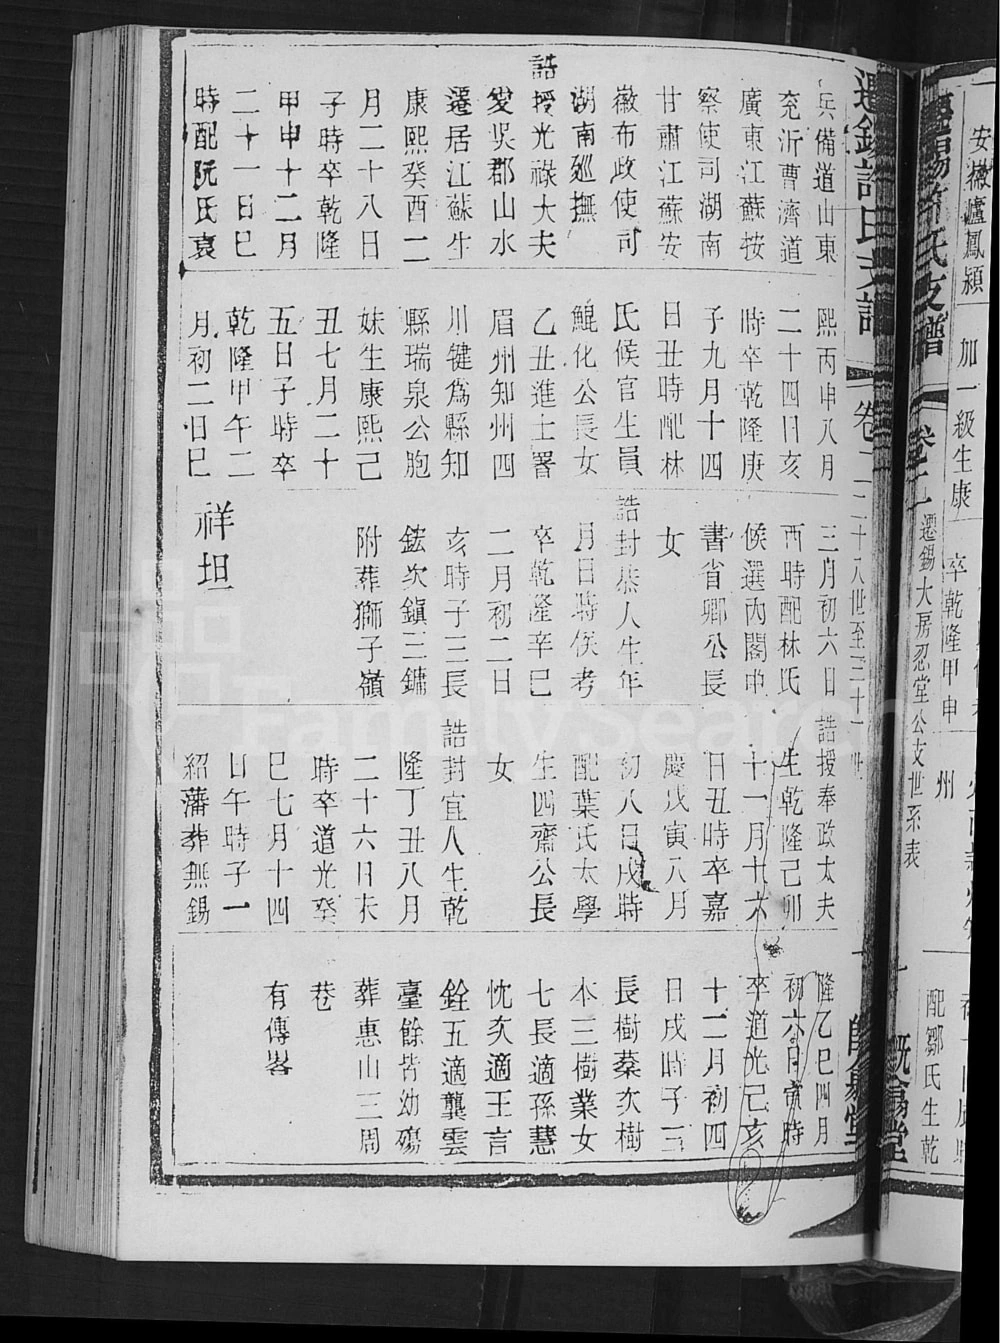 安徽廬鳳潁
加一級生康
卒乾隆甲申
州
配鄒氏生乾
支譜
遷錫大房忍堂公支世系表
遷錫許氏支譜
卷二
二十八世至三十一世
兵備道山東
兗沂曹濟道
廣東江蘇按
察使司湖南
甘肅江蘇安
徽布政使司
湖南廵撫
誥授光祿大夫
爰吳郡山水
遷居江蘇生
康熙癸酉二
月二十八日
子時卒乾隆
甲申十二月
二十一日巳
時配阮氏哀
熙丙申八月
二十四日亥
時卒乾隆庚
子九月十四
日丑時配林
氏候官生員
鯤化公長女
乙丑進士署
眉州知州四
川犍爲縣知
縣瑞泉公胞
妹生康熙己
丑七月二十
五日子時卒
乾隆甲午二
月初二日巳
三月初六日
酉時配林氏
候選內閣中
書省卿公長
女
誥封恭人生年
月日時俟考
卒乾隆辛巳
二月初二日
亥時子三長
鋐次鎭三鏞
附葬獅子嶺
祥坦
誥授奉政大夫
生乾隆己卯
十一月十六
日丑時卒嘉
慶戊寅八月
初八日戌時
配葉氏太學
生四齋公長
女
誥封宜人生乾
隆丁丑八月
二十六日未
時卒道光癸
巳七月十四
日午時子一
紹藩葬無錫
隆乙巳四月
初六日寅時
卒道光己亥
十二月初四
日戌時子三
長樹蓁次樹
本三樹業女
七長適孫慧
忱次適王言
銓五適龔雲
臺餘皆幼殤
葬惠山三周
巷
有傳畧